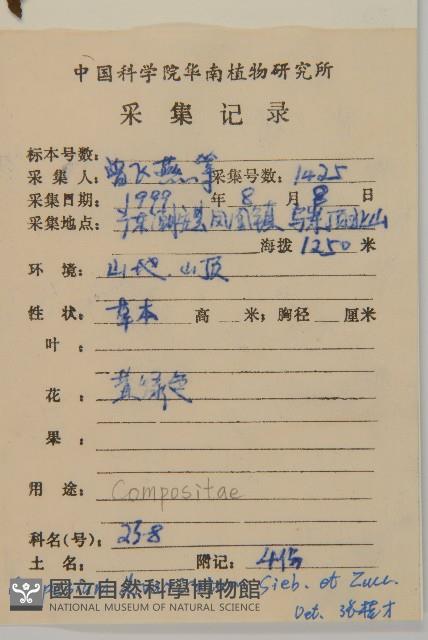 中国科学院华南植物研究所
采集记录
标本号数:
采集人: 曾飞燕等 采集号数: 1425
采集日期: 1999 年 8 月 8 日
采集地点: 广东 凤凰镇 乌 山
海拨 1250 米
环境: 山地.山顶
性状: 草本 高 米; 胸径 厘米
叶:
花: 黄绿色
果:
用途: Compositae
科名(号): 238
土名: 附记: 4份
Sieb. et Zucc.
國立自然科學博物館
NATIONAL MUSEUM OF NATURAL SCIENCE
Det. 张桂才